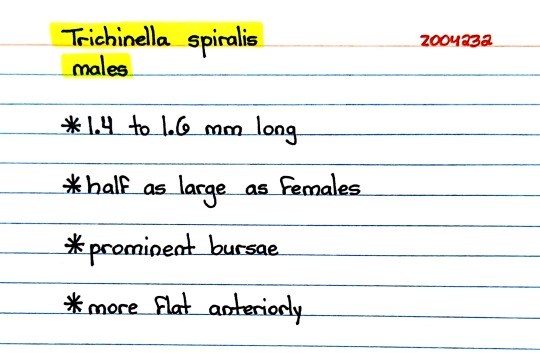 Trichinella spiralis 2004232
males
*1.4 to 1.6 mm long
*half as large as females
*prominent bursae
*more flat anteriorly